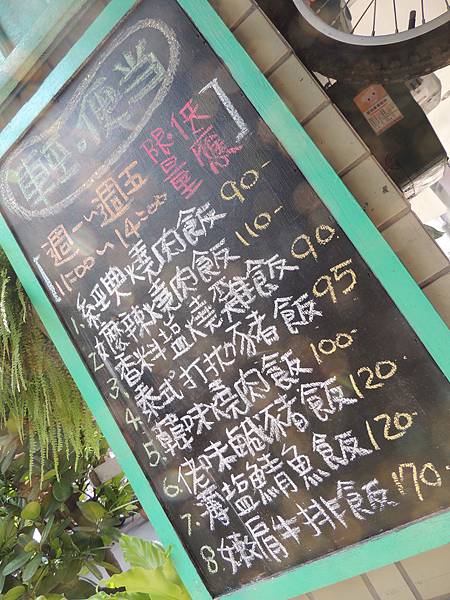 輕.便当
週一~週五
11:00~14:00
限.供
量應
1.經典燒肉飯 90-
2.辣燒肉飯 110-
3.香料塩燒雞飯 90
4.泰式打拋豬飯 95
5.韓味燒肉飯 100-
6.佬味鹹豬飯 120-
7.薄塩鯖魚飯 120-
8.嫩肩牛排飯 170-